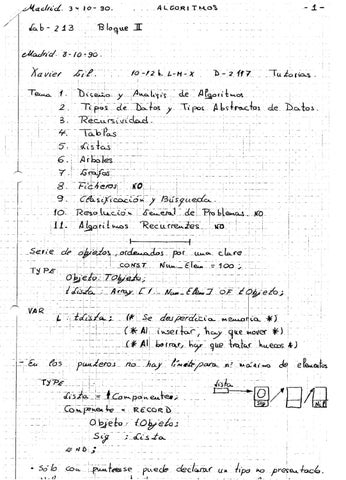 Madrid. 3-10-90. ALGORITMOS -1-
Lab-213 Bloque II
Madrid. 3-10-90.
Xavier Gil. 10-12h. L-M-X D-2117 Tutorías.
Tema 1. Diseño y Analisis de Algoritmos
2. Tipos de Datos y Tipos Abstractos de Datos.
3. Recursividad.
4. Tablas
5. Listas
6. Arboles
7. Grafos
8. Ficheros NO
9. Clasificación y Búsqueda
10. Resolución General de Problemas. NO
11. Algoritmos Recurrentes. NO
Serie de objetos, ordenados por una clave
CONST Num_Elem = 100;
TYPE
Objeto: TObjeto;
tLista: Array [1..Num_Elem] OF tObjeto;
VAR
L: tLista; (* Se desperdicia memoria *)
(* Al insertar, hay que mover *)
(* Al borrar, hay que tratar huecos *)
- En los punteros no hay límite para nº máximo de elementos
TYPE
Lista = ↑Componentes;
Componente = RECORD
Objeto: tObjeto;
Sig : Lista
END;
Lista
Sig
NIL
• Sólo con punteros se puede declarar un tipo no presentado.